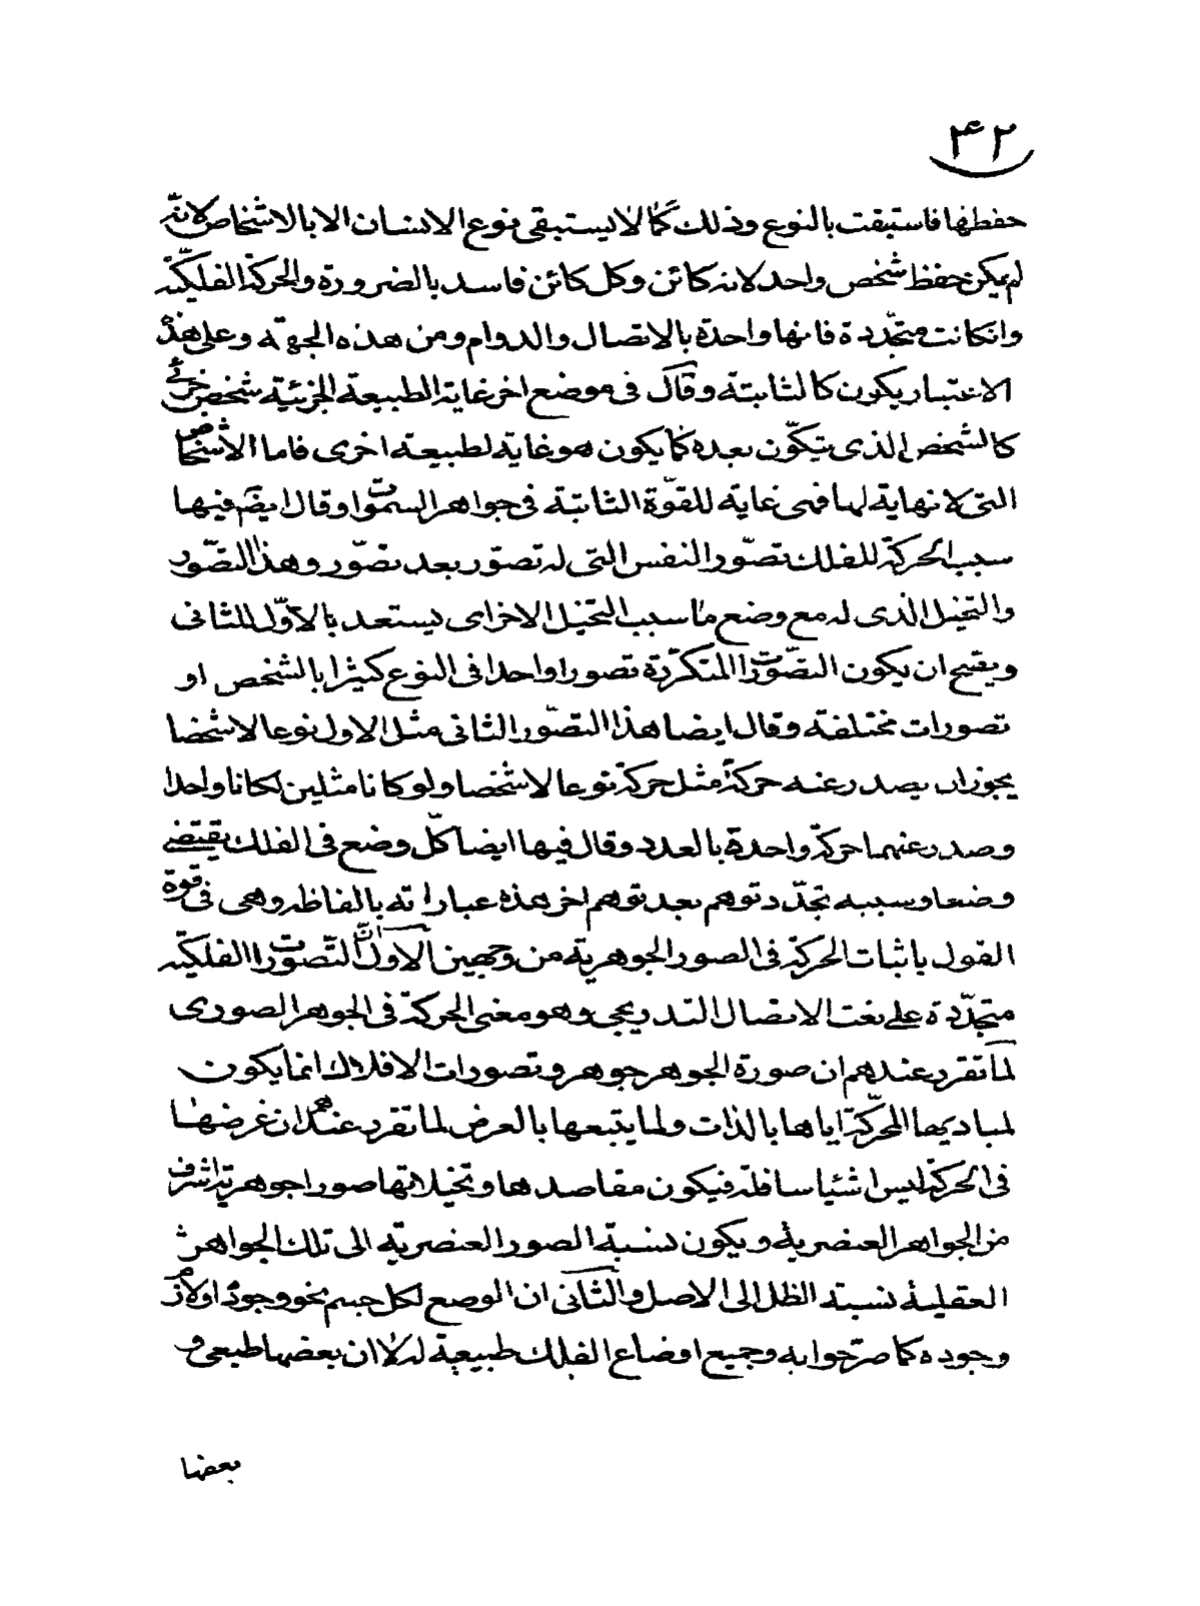 ۴۲
حفظها فاستبقت بالنوع وذلك كما لا يستبقى نوع الانسان الا بالاشخاص لانه
لم يمكن حفظ شخص واحد لانه كائن وكل كائن فاسد بالضرورة والحركة الفلكية
وان كانت متجددة فانها واحدة بالاتصال والدوام ومن هذه الجهة وعلى هذا
الاعتبار يكون كالثابتة وقال في موضع اخر غاية الطبيعة الجزئية شخص جزئي
كالشخص الذي يتكون بعده كما يكون هو غاية لطبيعة اخرى فاما الاشخاص
التي لا نهاية لها فهي غاية للقوة الثابتة في جواهر السموات وقال ايضم فيها
سبب الحركة للفلك تصور النفس التي له تصور بعد تصور وهذا التصور
والتخيل الذي له مع وضع ما سبب التخيل الاخر اى يستعد بالاول للثانى
ويقبح ان يكون التصورات المتكررة تصورا واحدا فى النوع كثيرا بالشخص او
تصورات مختلفة وقال ايضا هذا التصور الثانى مثل الاول نوعا لا شخصا
يجوز ان يصدر عنه حركة مثل حركة نوعا لا شخصا ولو كانا مثلين لكانا واحدا
وصدر عنهما حركة واحدة بالعدد وقال فيها ايضا كل وضع فى الفلك يقتضى
وضعا وسببه تجدد توهم بعد توهم اخر هذه عباراته بالفاظه وهى فى قوة
القول باثبات الحركة فى الصور الجوهرية من وجهين الاول ان التصورات الفلكية
متجددة على نعت الاتصال التدريجى وهو معنى الحركة فى الجوهر الصورى
لما تقرر عندهم ان صورة الجوهر جوهر وتصورات الافلاك انما يكون
لمباديها المحركة اياها بالذات ولما يتبعها بالعرض لما تقرر عندهم ان غرضها
فى الحركة ليس اشيا سافلة فيكون مقاصدها وتخيلاتها صورا جوهرية اشرف
من الجواهر العنصرية ويكون نسبة الصور العنصرية الى تلك الجواهر
العقلية نسبة الظل الى الاصل والثانى ان الوضع لكل جسم نحو وجوده او لازم
وجوده كما صرحوا به وجميع اوضاع الفلك طبيعية له لا ان بعضها طبيعى و
بعضا